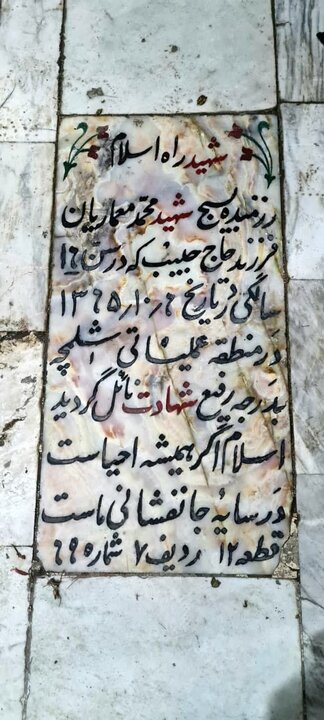 شهید راه اسلام
رزمنده بسیج شهید محمد معماریان
فرزند حاج حبیب که در سن ۱۶
سالگی در تاریخ ۱۳۶۵/۱۰/۶
در منطقه عملیاتی شلمچه
بدرجه رفیع شهادت نائل گردید
اسلام اگر همیشه احیا است
در سایه جانفشانی ماست
قطعه ۱۲ ردیف ۷ شماره ۶۹